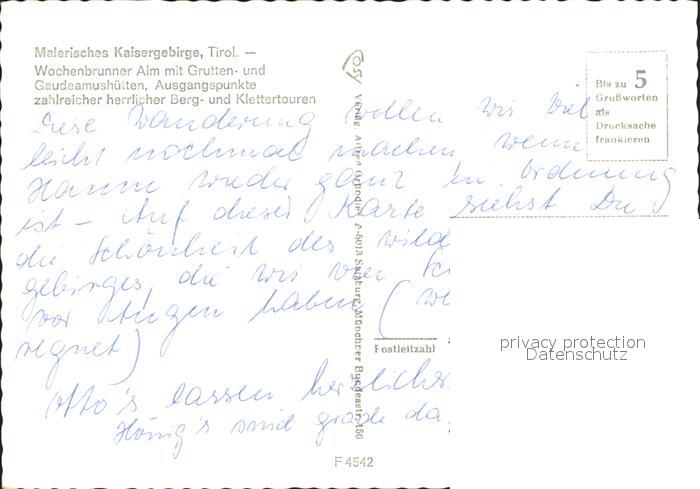 Malerisches Kaisergebirge, Tirol. —
Wochenbrunner Alm mit Grutten- und
Gaudeamushütten, Ausgangspunkte
zahlreicher herrlicher Berg- und Klettertouren
Bis zu 5
Grußworten
als
Drucksache
frankieren
Diese Wanderung wollen wir viel
leicht nochmal machen wenn
Hanne wieder ganz in Ordnung
ist – Auf dieser Karte siehst Du
die Schönheit des wild
gebirges, die wir von
vor Augen haben (we
regnet)
Otto's lassen herzlichst
Hönig's sind grade da
Cosy
Verlag Alfred Gründler, A-5013 Salzburg, Münchner Bundesstr. 156
Postleitzahl
F 4542
privacy protection
Datenschutz